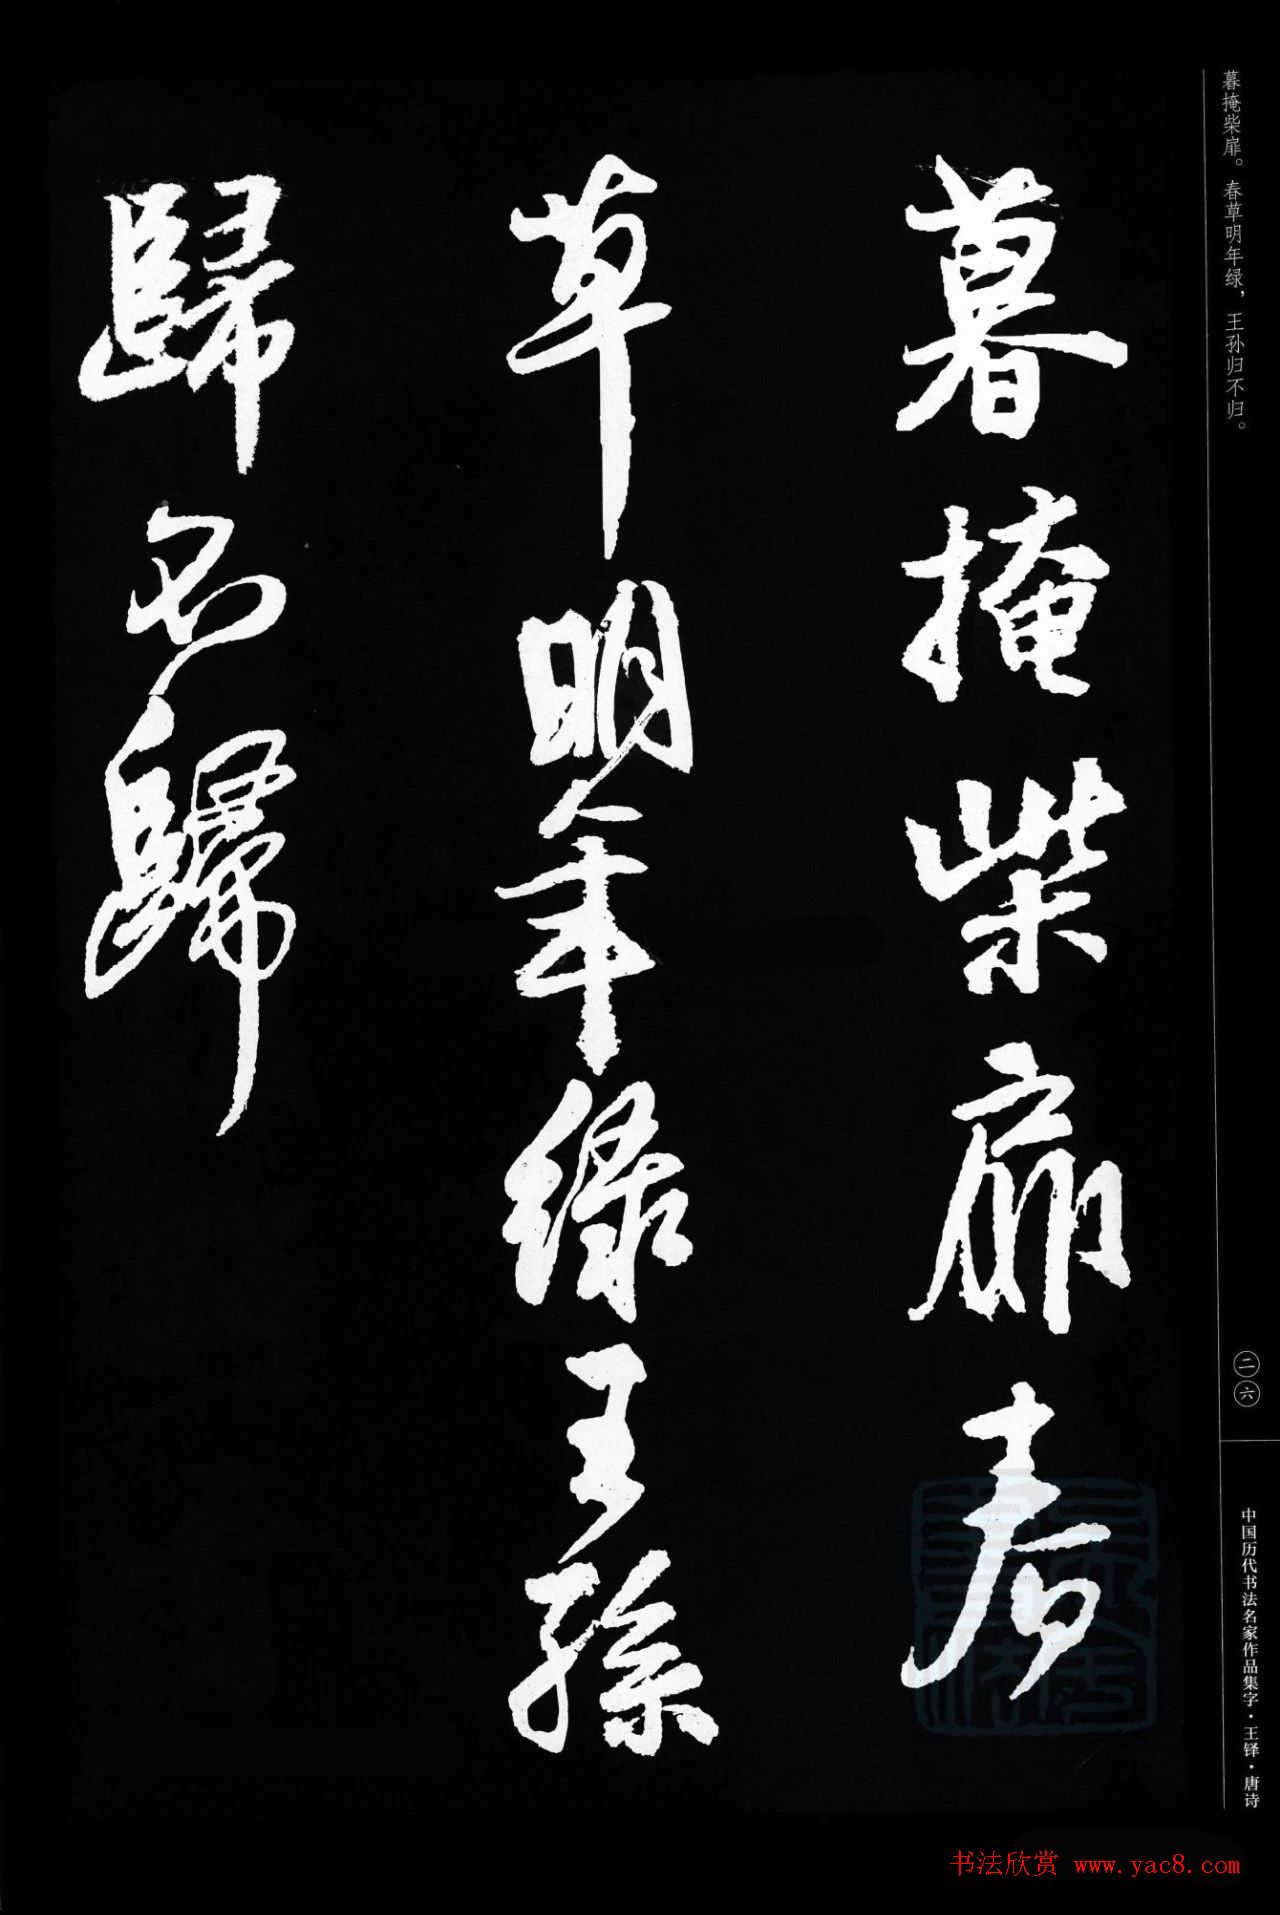 暮掩柴扉。春草明年绿，王孙归不归。
暮掩柴扉春
草明年绿王孫
歸不歸
二六
中国历代书法名家作品集字·王铎·唐诗
书法欣赏 www.yac8.com